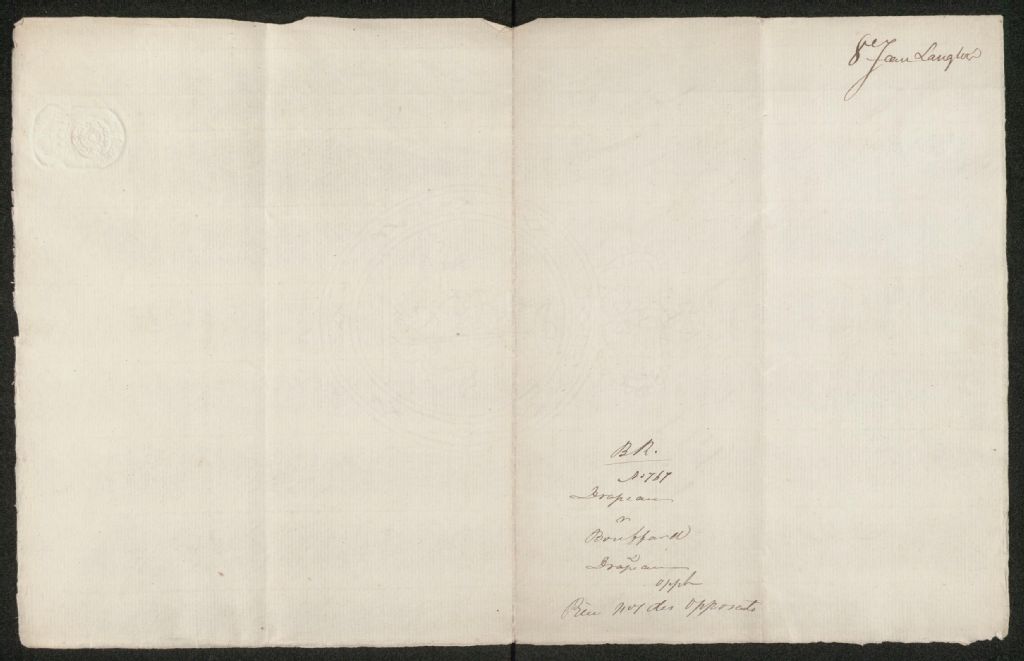 8e Jean Langlois
B R.
No 767
Drapeau
v
Bouffard
&
Drapeau
oppt
Pièce No 1 des Opposants